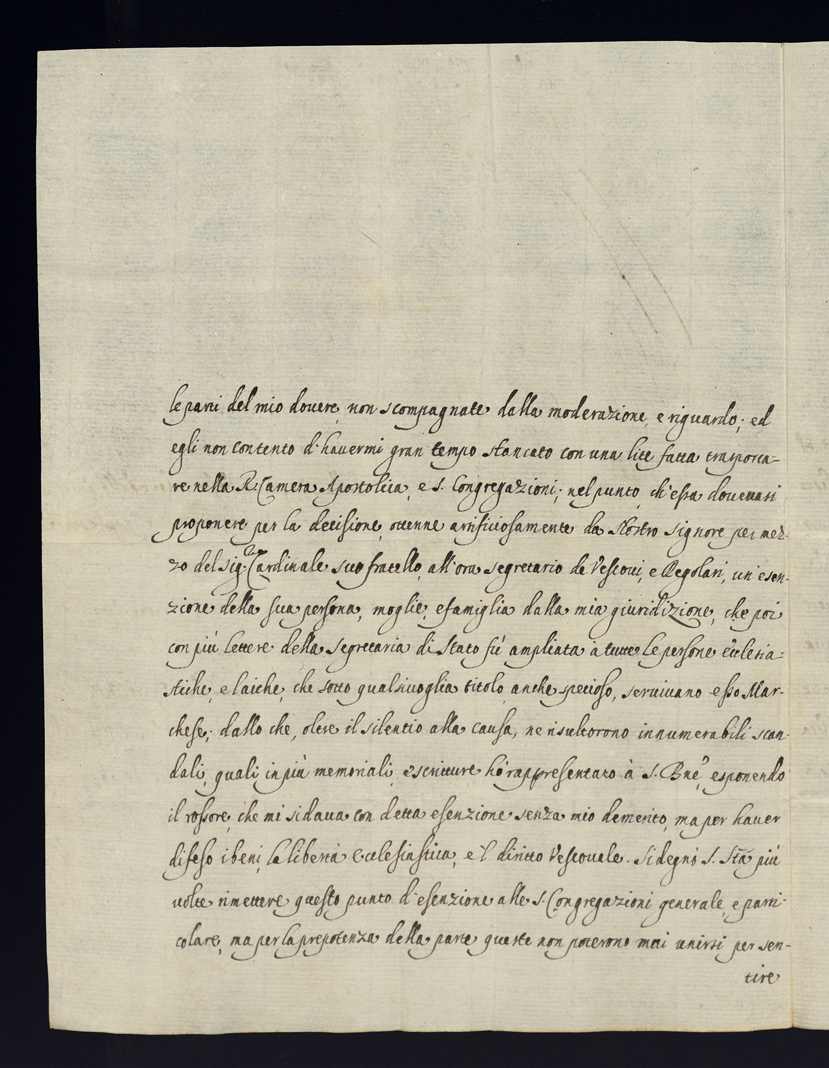 le parti del mio dovere, non scompagnate dalla moderazione, e riguardo; ed
egli non contento d'havermi gran tempo stancato con una lite fatta trasporta-
re nella R. Camera Apostolica, e S. Congregazioni; nel punto, ch'essa dovevasi
proponere per la decisione, ottenne artificiosamente da Nostro Signore per mez-
zo del Sig.r Cardinale suo fratello, all'ora segretario de Vescovi, e Regolari, un'esen-
zione della sua persona, moglie, e famiglia dalla mia giuridizione, che poi
con più lettere della Segretaria di Stato fù ampliata à tutte le persone eccclesia-
stiche, e laiche, che sotto qualsivoglia titolo, anche specioso, servivano esso Mar-
chese; dallo che, oltre il silentio alla causa, ne risultorono innumerabili scan-
dali, quali in più memoriali, e scritture hò rappresentato à S. Bne, esponendo
il rossore, che mi si dava con detta esenzione senza mio demerito, ma per haver
difeso i beni, la libertà Ecclesiastica, e 'l diritto Vescovale. Si degnò S. Stà più
volte rimettere questo punto d'esenzione alle S. Congregazioni generale, e parti-
colare, ma per la prepotenza della parte queste non poterono mai unirsi per sen-
tire